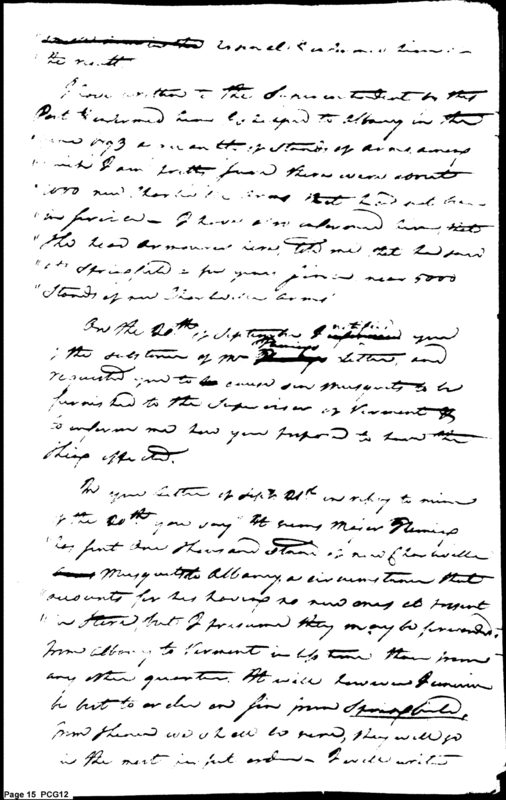 the
I have written to the Superintendent of this
Port & informed him I shipped to Albany in the
1793 a of Stands of Arms among
which I am pretty there were about
1000 new Charleville Arms that had not been
in service - I have also informed him that
the head armourer here, told me that he had
Springfield near 5000
"Stands of new Charleville Arms"
On the 20th of September I notified you
of the substance of Mr Flemings Letter, and
requested you to cause six Musquets to be
furnished to the Supervisor of Vermont &
to inform me how you propose to have the
thing effected.
In your Letter of Sept. 21st in reply to mine
of the 20th you say "It seems Major Fleming
has sent One thousand Stand of new Charleville
Musquets to Albany, a circumstance that
accounts for his having no new ones at present
"in Store, but I presume they may be forwarded
from Albany to Vermont in less time than from
any other quarter. It will however I conceive
be best to order on six from Springfield,
from thence we shall be sure, they will go
in the most perfect order - I will write
Page 15 PCG12